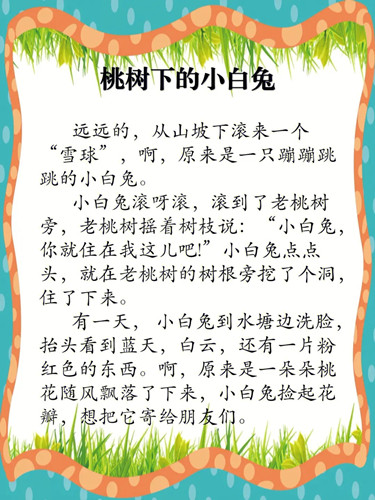 桃树下的小白兔
远远的，从山坡下滚来一个
“雪球”，啊，原来是一只蹦蹦跳
跳的小白兔。
小白兔滚呀滚，滚到了老桃树
旁，老桃树摇着树枝说：“小白兔，
你就住在我这儿吧!”小白兔点点
头，就在老桃树的树根旁挖了个洞，
住了下来。
有一天，小白兔到水塘边洗脸，
抬头看到蓝天，白云，还有一片粉
红色的东西。啊，原来是一朵朵桃
花随风飘落了下来，小白兔捡起花
瓣，想把它寄给朋友们。